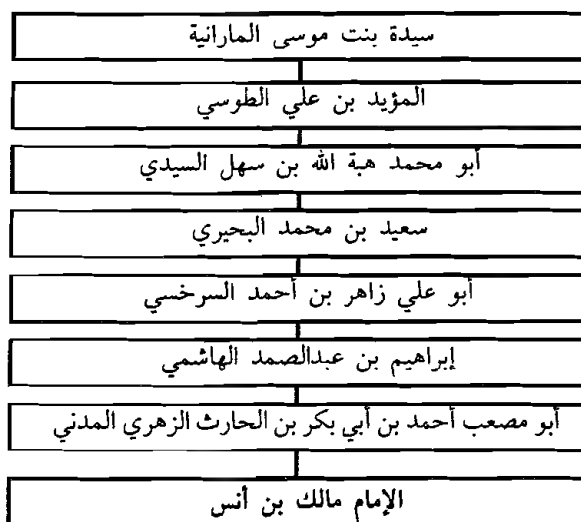 سيدة بنت موسى المارانية
المؤيد بن علي الطوسي
أبو محمد هبة الله بن سهل السيدي
سعيد بن محمد البحيري
أبو علي زاهر بن أحمد السرخسي
إبراهيم بن عبدالصمد الهاشمي
أبو مصعب أحمد بن أبي بكر بن الحارث الزهري المدني
الإمام مالك بن أنس